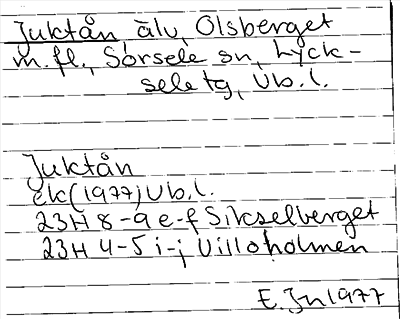 Juktån, älv, Olsberget
m.fl., Sorsele sn, Lyck-
sele tg, Vb.l.
Juktån
ek (1977) Vb.l.
23H 8-9 e-f Sikselberget
23H 4-5 i-j Villoholmen
E.Jn 1977